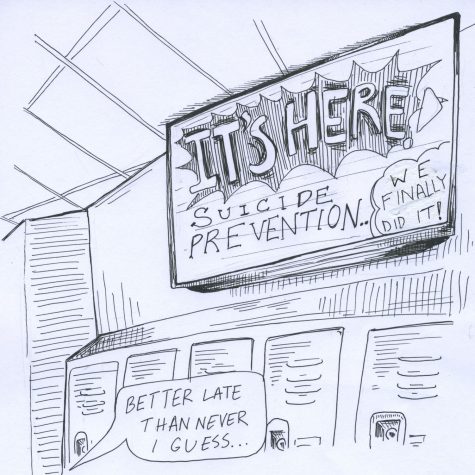 IT'S HERE!
SUICIDE
PREVENTION..
WE
FINALLY
DID IT!
BETTER LATE
THAN NEVER
I GUESS...